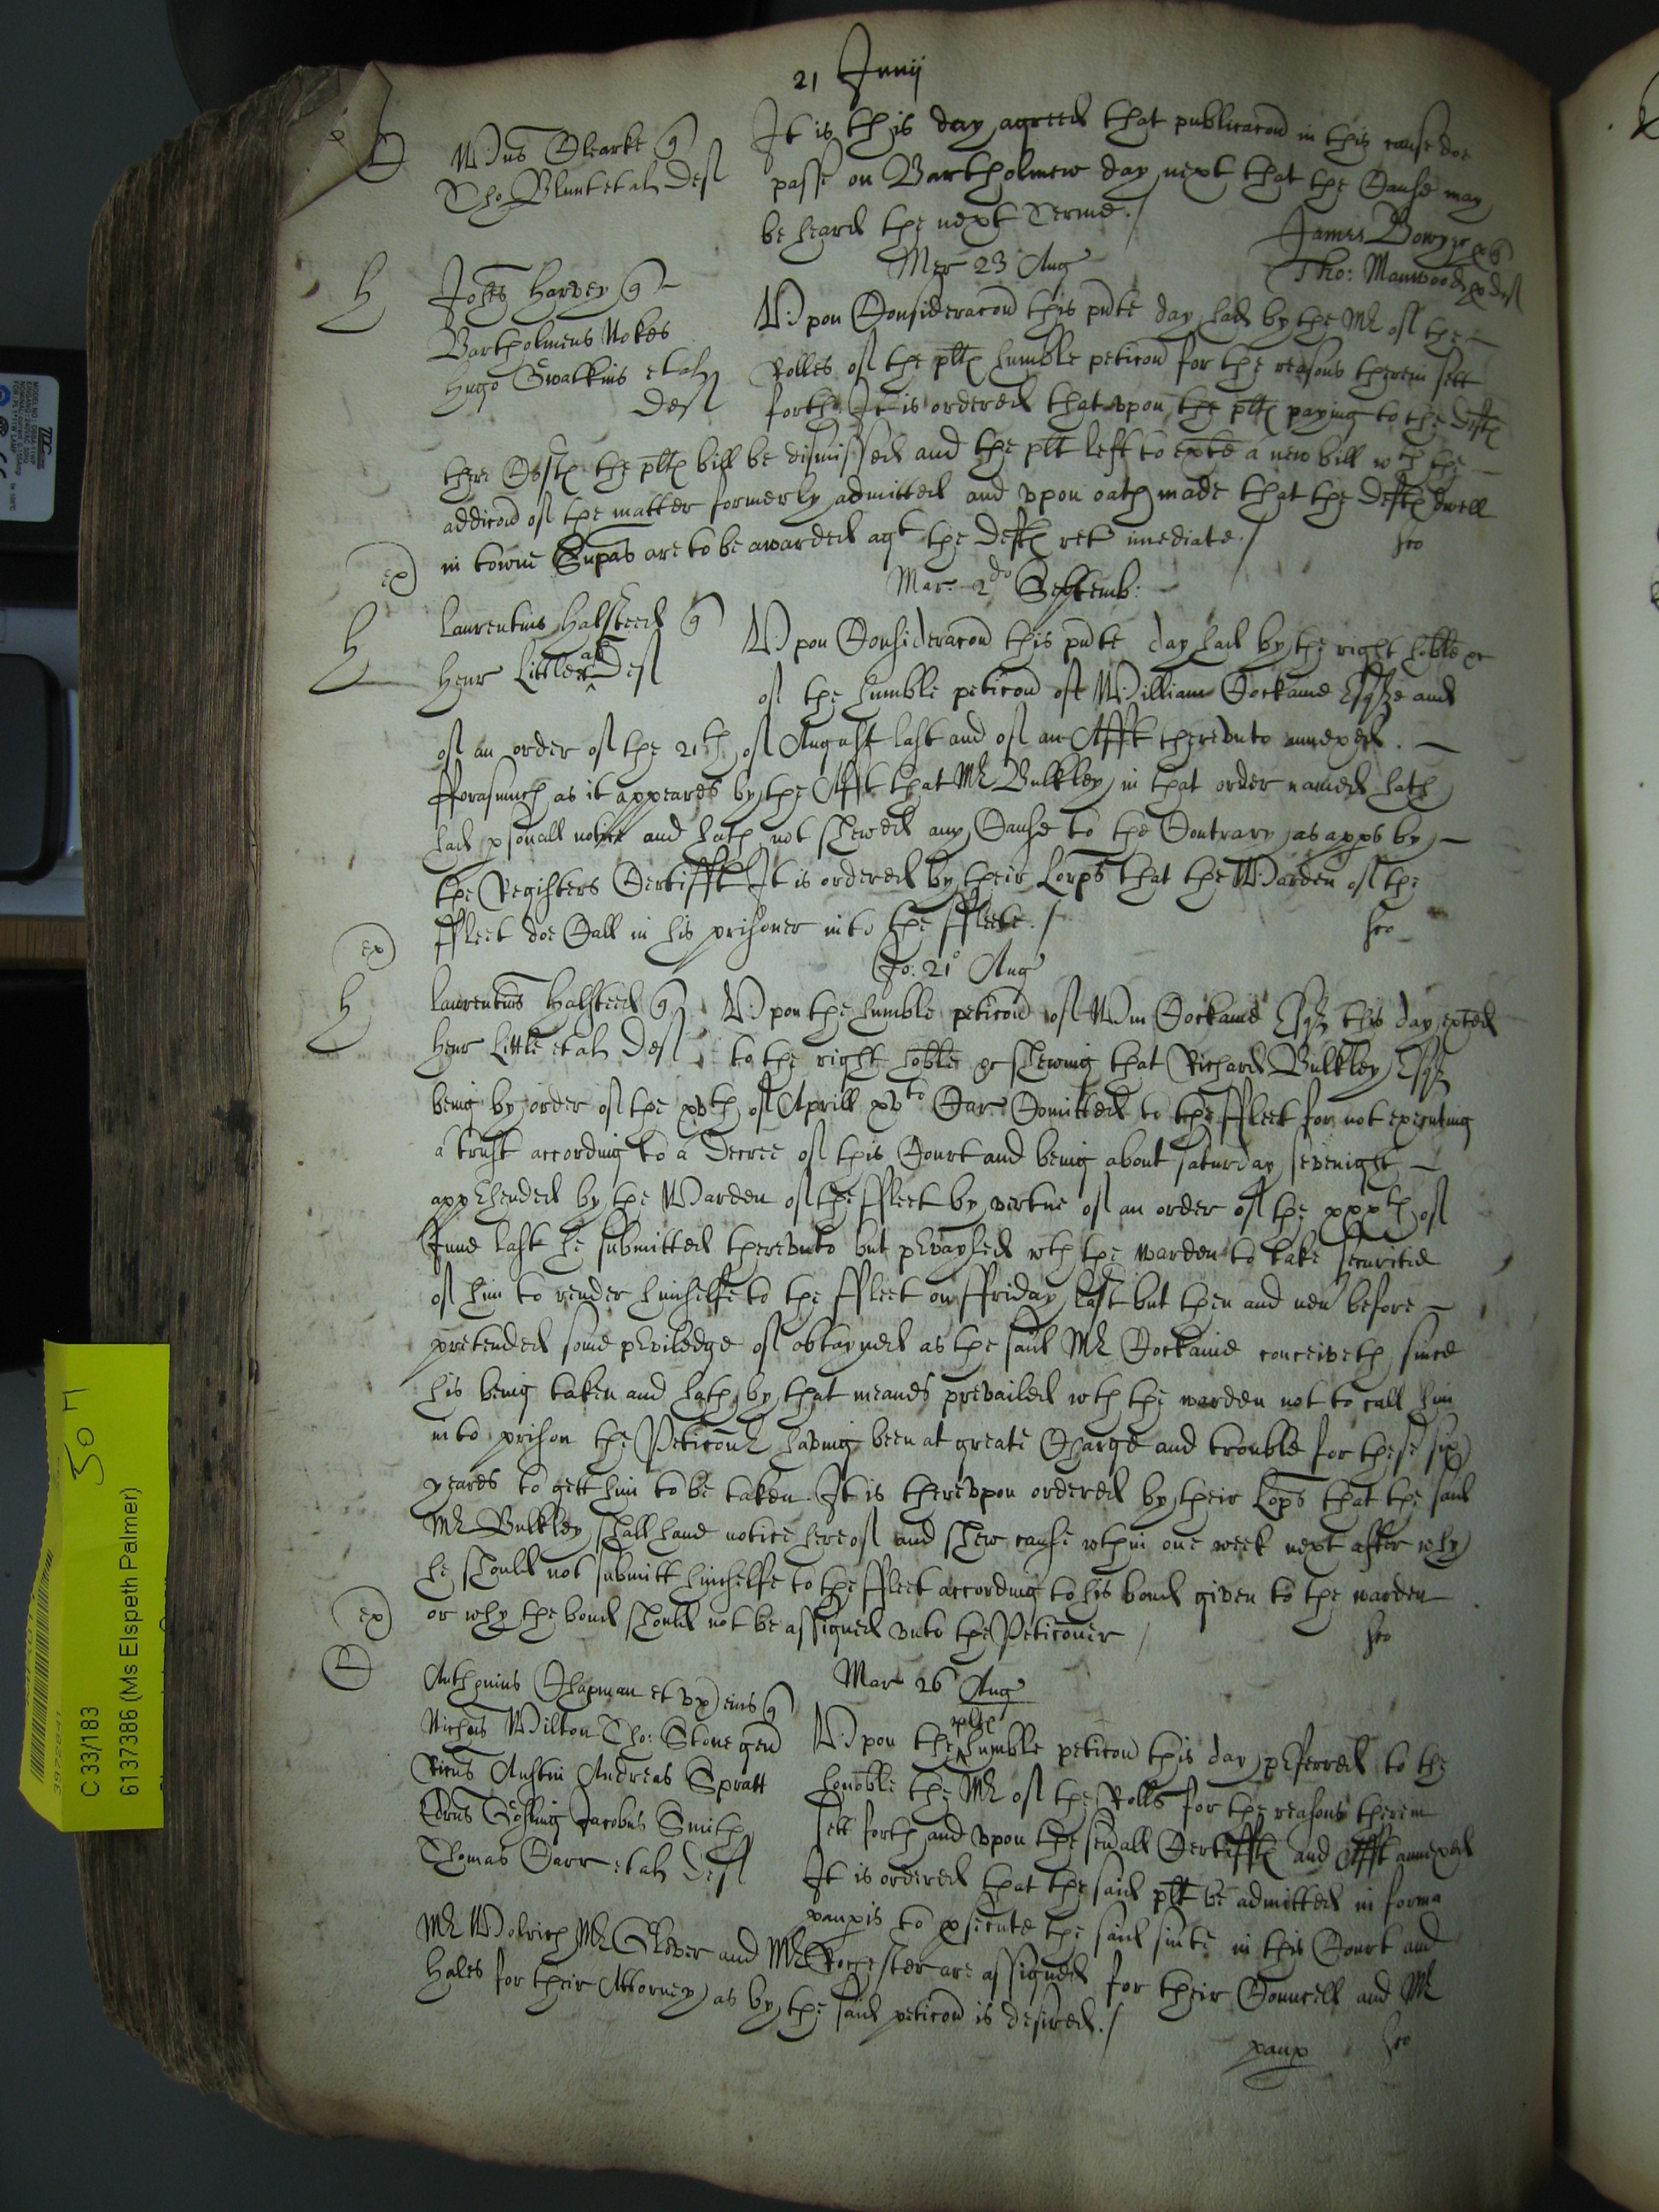 21 Junij
Willus Clearke q
Tho Blunt et al Def
It is this day agreed that publicacon in this cause doe
passe on Bartholmew day next that the Cause may
be heard the next Terme./
James Bowyer p q
Tho: Manwoode p def
Mer 23 Aug
H
Johes Harvey q
Bartholmeus Nokes
Hugo Swalkins et al
Def
Upon Consideracon this pnte day had by the Mr of the
Rolles of the plts humble peticon for the reasons therein sett
forth It is ordered that upon the plts paying to the defts
there Costs the plts bill be dismissed and the plt left to exte a new bill wth the
addicon of the matter formerly admitted and upon oath made that the Defts dwell
in towne Supas are to be awarded agt the Defts ret imediate./
ex
Mar 2do Septemb:
H
Laurentius Halsteed q
Henr Little et al Def
Upon Consideracon this pnte day had by the right hoble &c
of the humble peticon of William Cockaine Esqre and
of an order of the 21th of August last and of an Afft thereunto annexed.
fforasmuch as it appeares by the Afft that Mr Bulkley in that order named hath
had psonall notice and hath not shewed any Cause to the Contrary as apps by
the Registers Certifft It is ordered by their Lorps that the Warden of the
ffleet doe Call in his prisoner into the ffleete./
ex
Jo: 21o Aug
H
Laurentius Halsteed q
Henr Little et al Def
Upon the humble peticon of Wm Cockaine Esqr this day exted
to the right hoble &c shewing that Richard Bulkley Esqr
being by order of the xvth of Aprill xvto Car Comitted to the ffleet for not executing
a trust according to a Decree of this Court and being about saturday sevenight
apprhended by the Warden of the ffleet by vertue of an order of the xxxth of
June last he submitted thereunto but prvayled wth the warden to take securitie
of him to render himselfe to the ffleet on ffriday last but then and nevr before
pretended some priviledge of obtayned as the said Mr Cockaine conceiveth since
his being taken and hath by that meanes prevailed wth the warden not to call him
into prison the Peticonr having been at greate Charge and trouble for these six
yeares to gett him to be taken. It is thereupon ordered by their Lops that the said
Mr Bulkley shall have notice hereof and shew cause wthin one week next after why
he should not submitt himselfe to the ffleet according to his bond given to the warden
or why the bond should not be assigned unto the Peticoner /
ex
P
Mar 26 Aug
Anthonius Chapman et ux eius q
Nichas Wilton Tho: Stone gen
Ricus Austin Andreas Spratt
Edrus Gosling Jacobus Smith
Thomas Carr et al Def
Upon the plts humble peticon this day prferred to the
honoble the Mr of the Rolls for the reasons therein
sett forth and upon the sevall Certiffts and Afft annexed
It is ordered that the said plt be admitted in forma
paupis to psecute the said suite in this Court and
Mr Wolrich Mr Glover and Mr Rochester are assigned for their Councell and Mr
Hales for their Attorney as by the said peticon is desired./
paup
C 33/183
6137386 (Ms Elspeth Palmer)